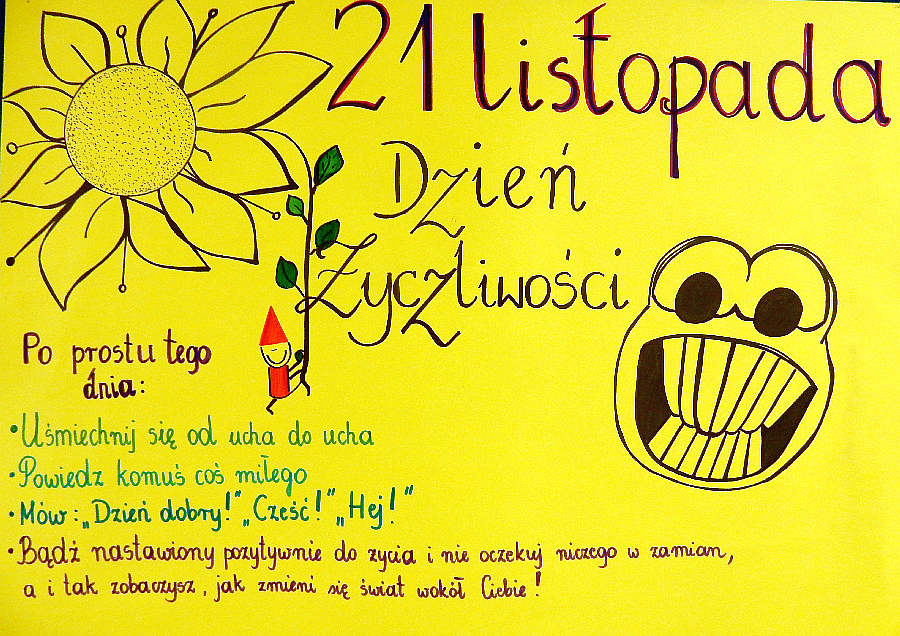 21 listopada
Dzień
Życzliwości
Po prostu tego
dnia:
• Uśmiechnij się od ucha do ucha
• Powiedz komuś coś miłego
• Mów: „Dzień dobry!" „Cześć!" „Hej!"
• Bądź nastawiony pozytywnie do życia i nie oczekuj niczego w zamian,
a i tak zobaczysz, jak zmieni się świat wokół Ciebie!